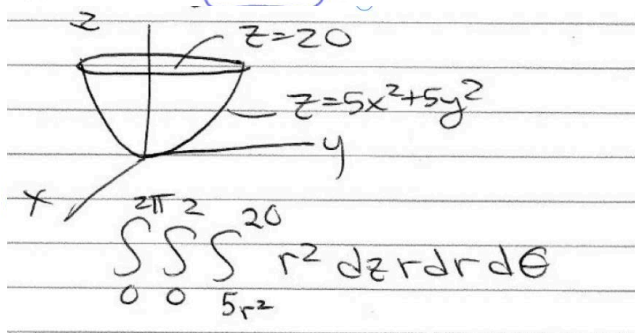 z
z=20
z=5x²+5y²
y
x
∫₀^2π ∫₀^2 ∫_5r²^20 r² dz r dr dθ